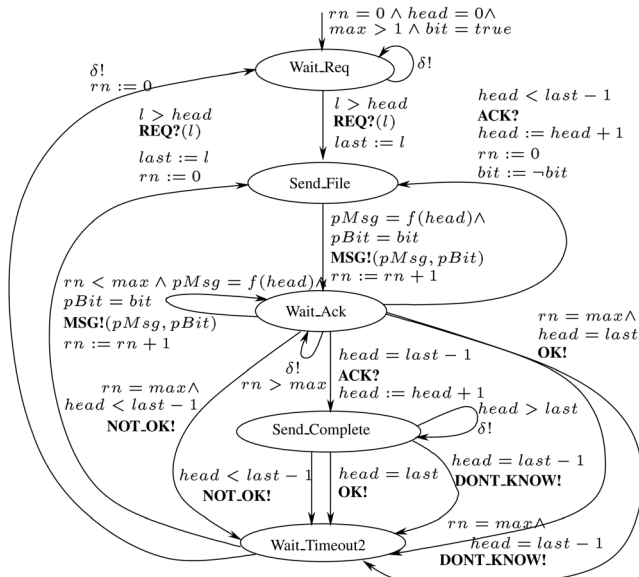 rn = 0 ∧ head = 0∧
max > 1 ∧ bit = true
δ!
rn := 0
Wait_Req
δ!
l > head
REQ?(l)
last := l
rn := 0
l > head
REQ?(l)
last := l
head < last − 1
ACK?
head := head + 1
rn := 0
bit := ¬bit
Send_File
pMsg = f(head)∧
pBit = bit
MSG!(pMsg, pBit)
rn := rn + 1
rn < max ∧ pMsg = f(head)∧
pBit = bit
MSG!(pMsg, pBit)
rn := rn + 1
Wait_Ack
δ!
rn > max
rn = max∧
head = last
OK!
head = last − 1
ACK?
head := head + 1
rn = max∧
head < last − 1
NOT_OK!
head > last
δ!
Send_Complete
head < last − 1
NOT_OK!
head = last
OK!
head = last − 1
DONT_KNOW!
rn = max∧
head = last − 1
DONT_KNOW!
Wait_Timeout2